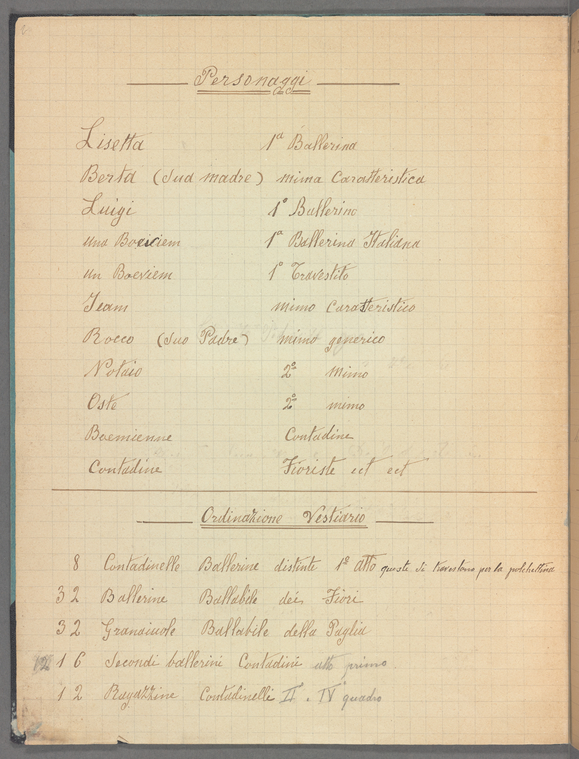 Personaggi
Lisetta 1ª Ballerina
Berta (sua madre) mima Caratteristica
Luigi 1º Ballerino
una Boeviem 1ª Ballerina Italiana
un Boeviem 1º Travestito
Jeam mimo Caratteristico
Rocco (suo Padre) mimo generico
Notaio 2º Mimo
Oste 2º mimo
Boemienne Contadine
Contadine Fioriste ect ect
Ordinazione Vestiario
8 Contadinelle Ballerine distinte 1º atto queste si travestono per la polchettina
32 Ballerine Ballabile dei Fiori
32 Grandiuole Ballabile della Paglia
16 Secondi ballerini Contadini atto primo
12 Ragazzine Contadinelli II. IV quadro